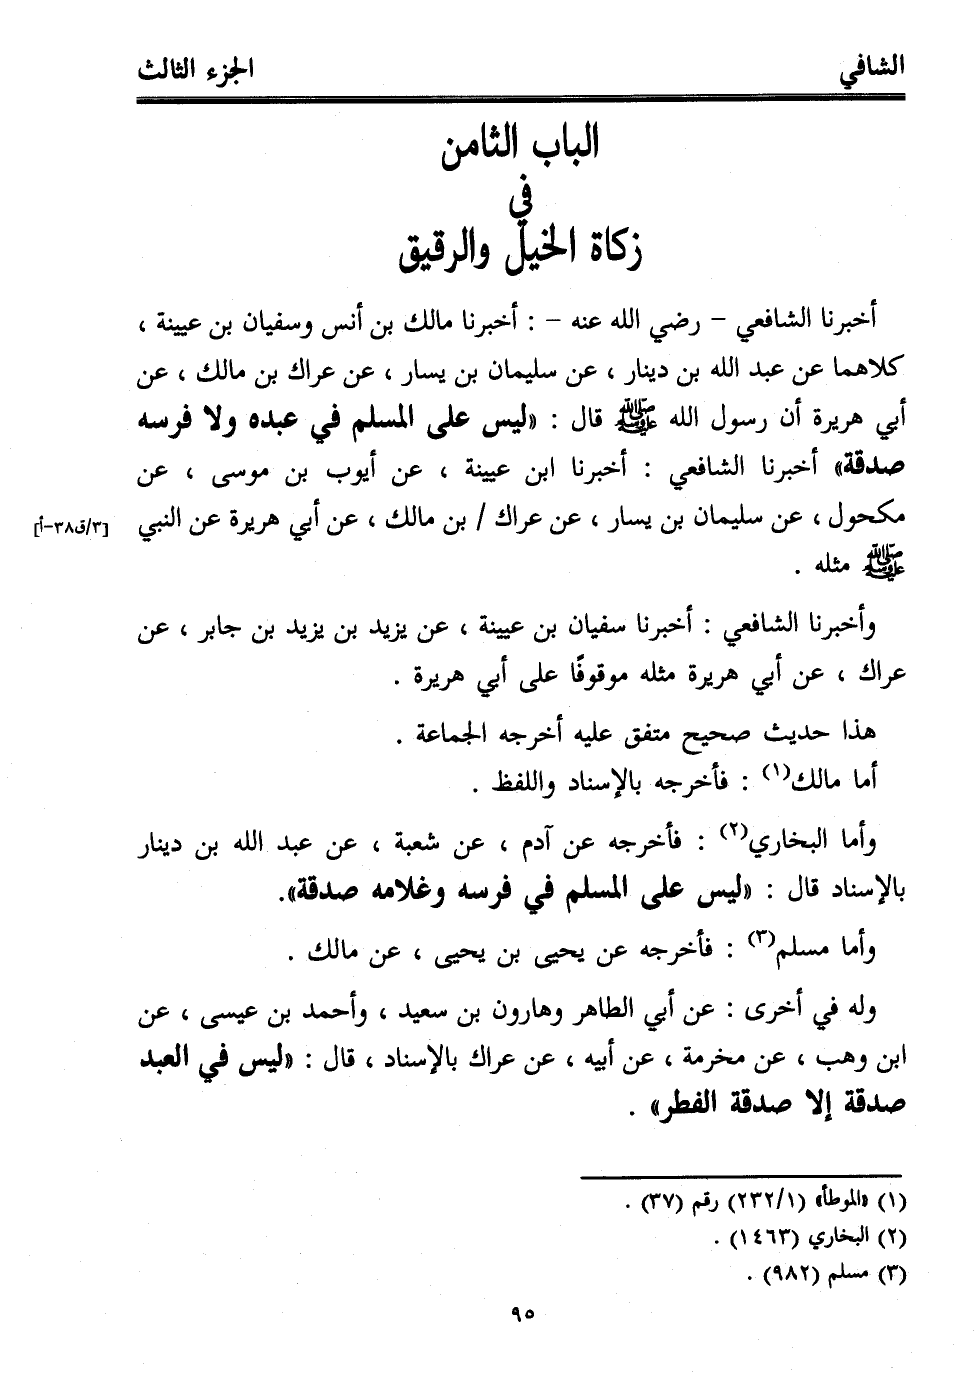 الشافي
الجزء الثالث
الباب الثامن
في
زكاة الخيل والرقيق
أخبرنا الشافعي - رضي الله عنه - : أخبرنا مالك بن أنس وسفيان بن عيينة ،
كلاهما عن عبد الله بن دينار ، عن سليمان بن يسار ، عن عراك بن مالك ، عن
أبي هريرة أن رسول الله ﷺ قال : «ليس على المسلم في عبده ولا فرسه
صدقة» أخبرنا الشافعي : أخبرنا ابن عيينة ، عن أيوب بن موسى ، عن
مكحول ، عن سليمان بن يسار ، عن عراك / بن مالك ، عن أبي هريرة عن النبي
[٣/ق٣٨-أ]
ﷺ مثله .
وأخبرنا الشافعي : أخبرنا سفيان بن عيينة ، عن يزيد بن يزيد بن جابر ، عن
عراك ، عن أبي هريرة مثله موقوفًا على أبي هريرة .
هذا حديث صحيح متفق عليه أخرجه الجماعة .
أما مالك(١) : فأخرجه بالإسناد واللفظ .
وأما البخاري(٢) : فأخرجه عن آدم ، عن شعبة ، عن عبد الله بن دينار
بالإسناد قال : «ليس على المسلم في فرسه وغلامه صدقة».
وأما مسلم(٣) : فأخرجه عن يحيى بن يحيى ، عن مالك .
وله في أخرى : عن أبي الطاهر وهارون بن سعيد ، وأحمد بن عيسى ، عن
ابن وهب ، عن مخرمة ، عن أبيه ، عن عراك بالإسناد ، قال : «ليس في العبد
صدقة إلا صدقة الفطر» .
(١) «الموطأ» (٢٣٢/١) رقم (٣٧) .
(٢) البخاري (١٤٦٣) .
(٣) مسلم (٩٨٢) .
٩٥